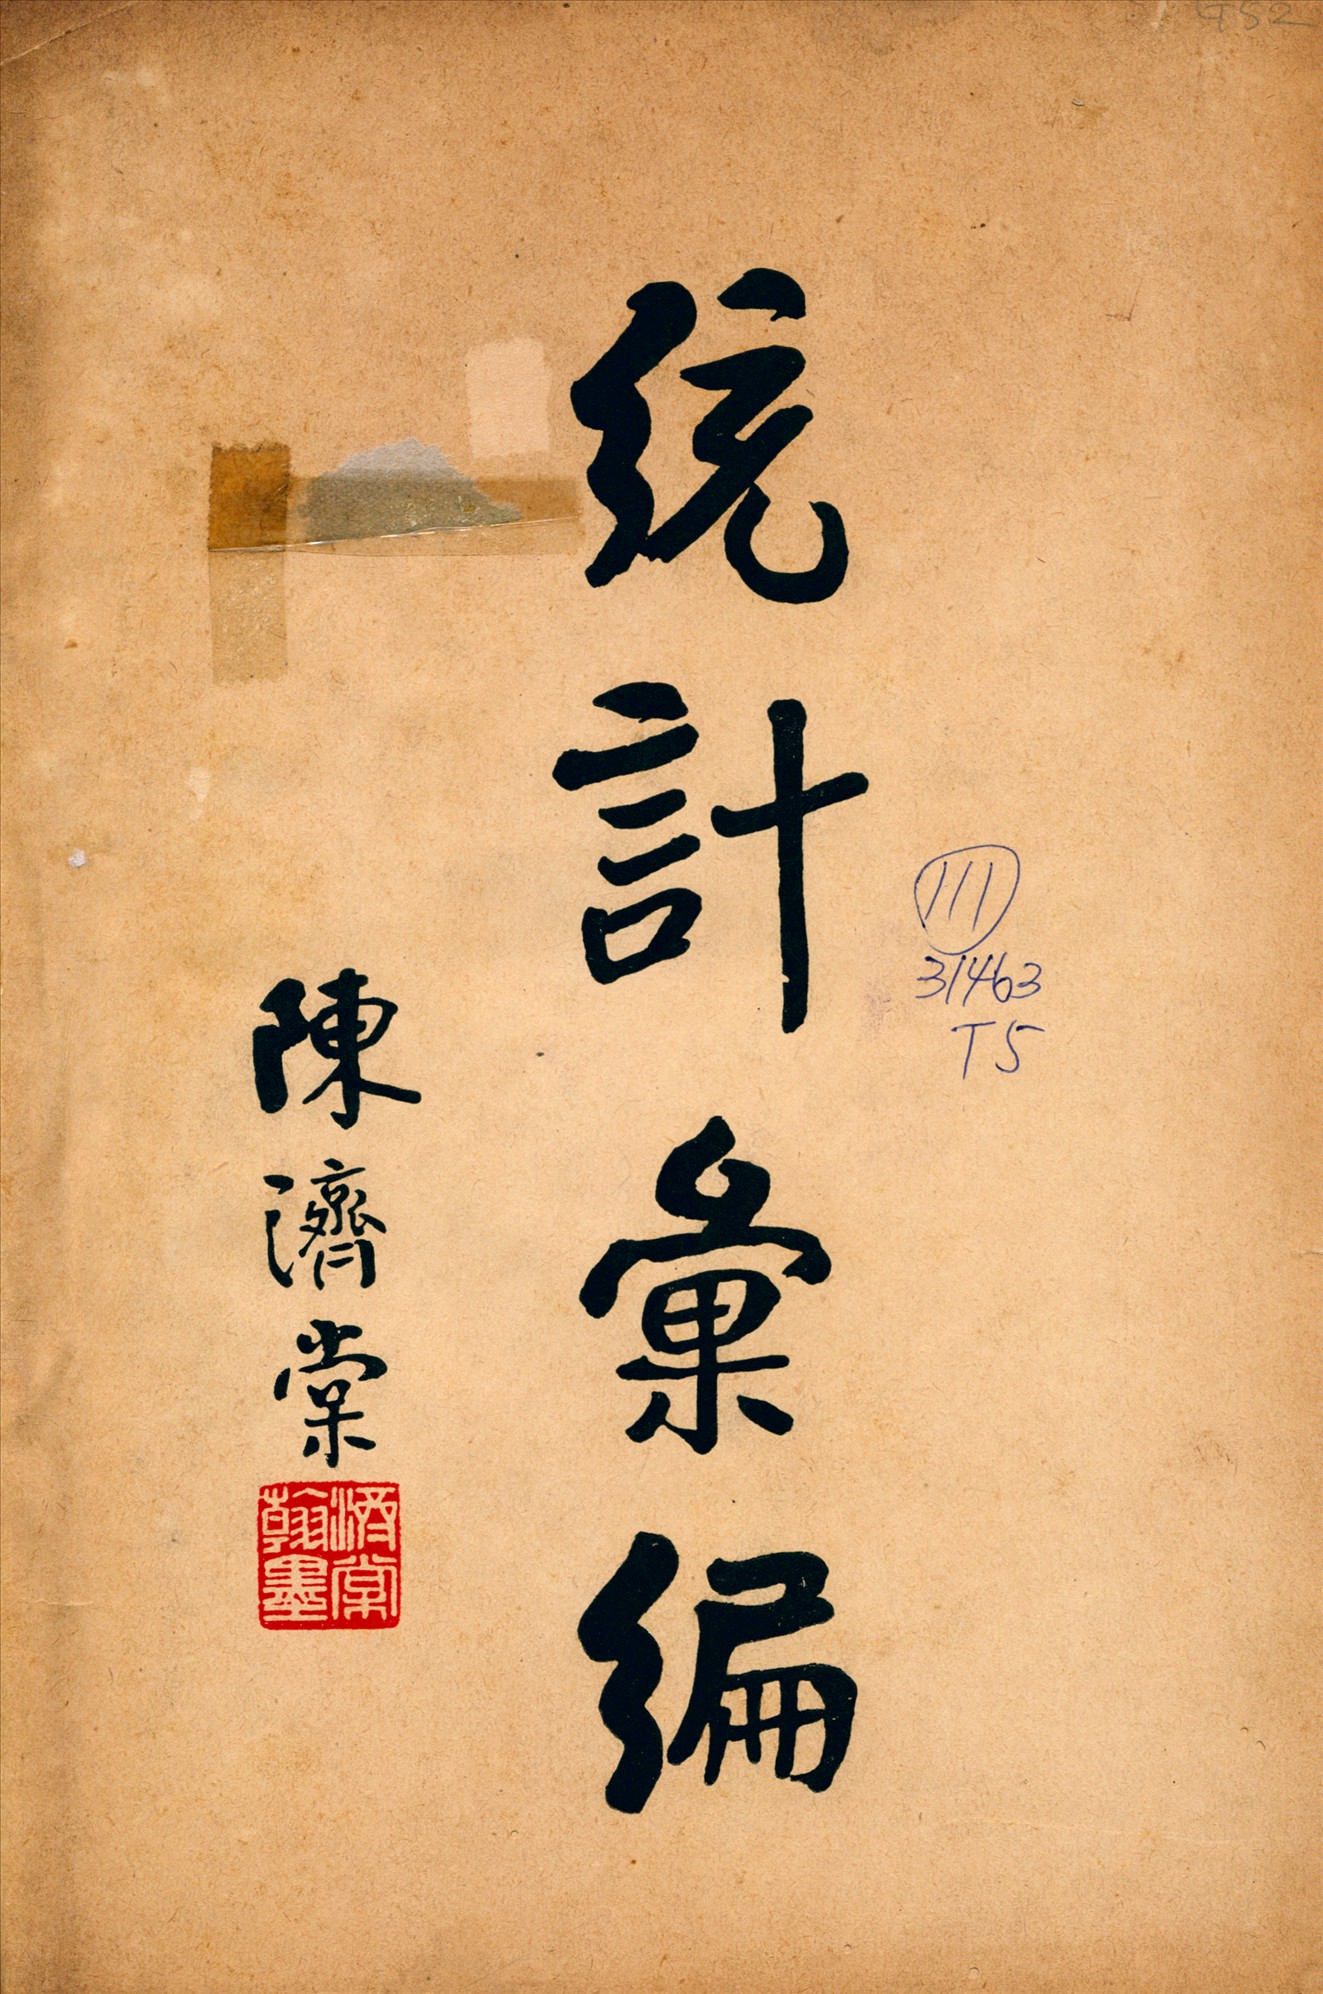 統計彙編
陳濟棠
濟棠翰墨
111
31463
T5